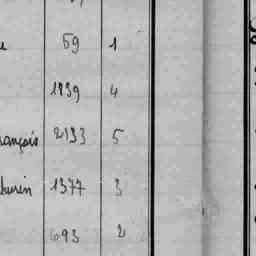 59 1
1839 4
rançois 2133 5
thurin 1377 3
693 2